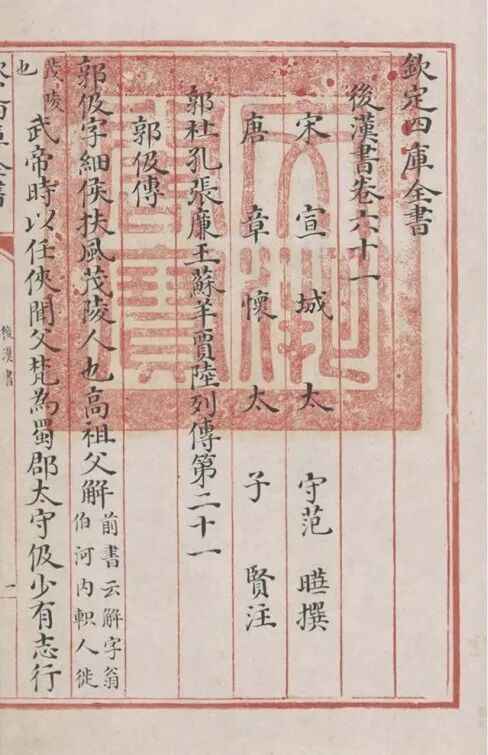 欽定四庫全書
後漢書卷六十一
宋宣城太守范曄撰
唐章懷太子賢注
郭杜孔張廉王蘇羊賈陸列傳第二十一
郭伋傳
郭伋字細侯扶風茂陵人也高祖父解
前書云解字翁
伯河内軹人徙
茂陵
也
武帝時以任俠聞父梵為蜀郡太守伋少有志行
後漢書
一
文淵閣寶